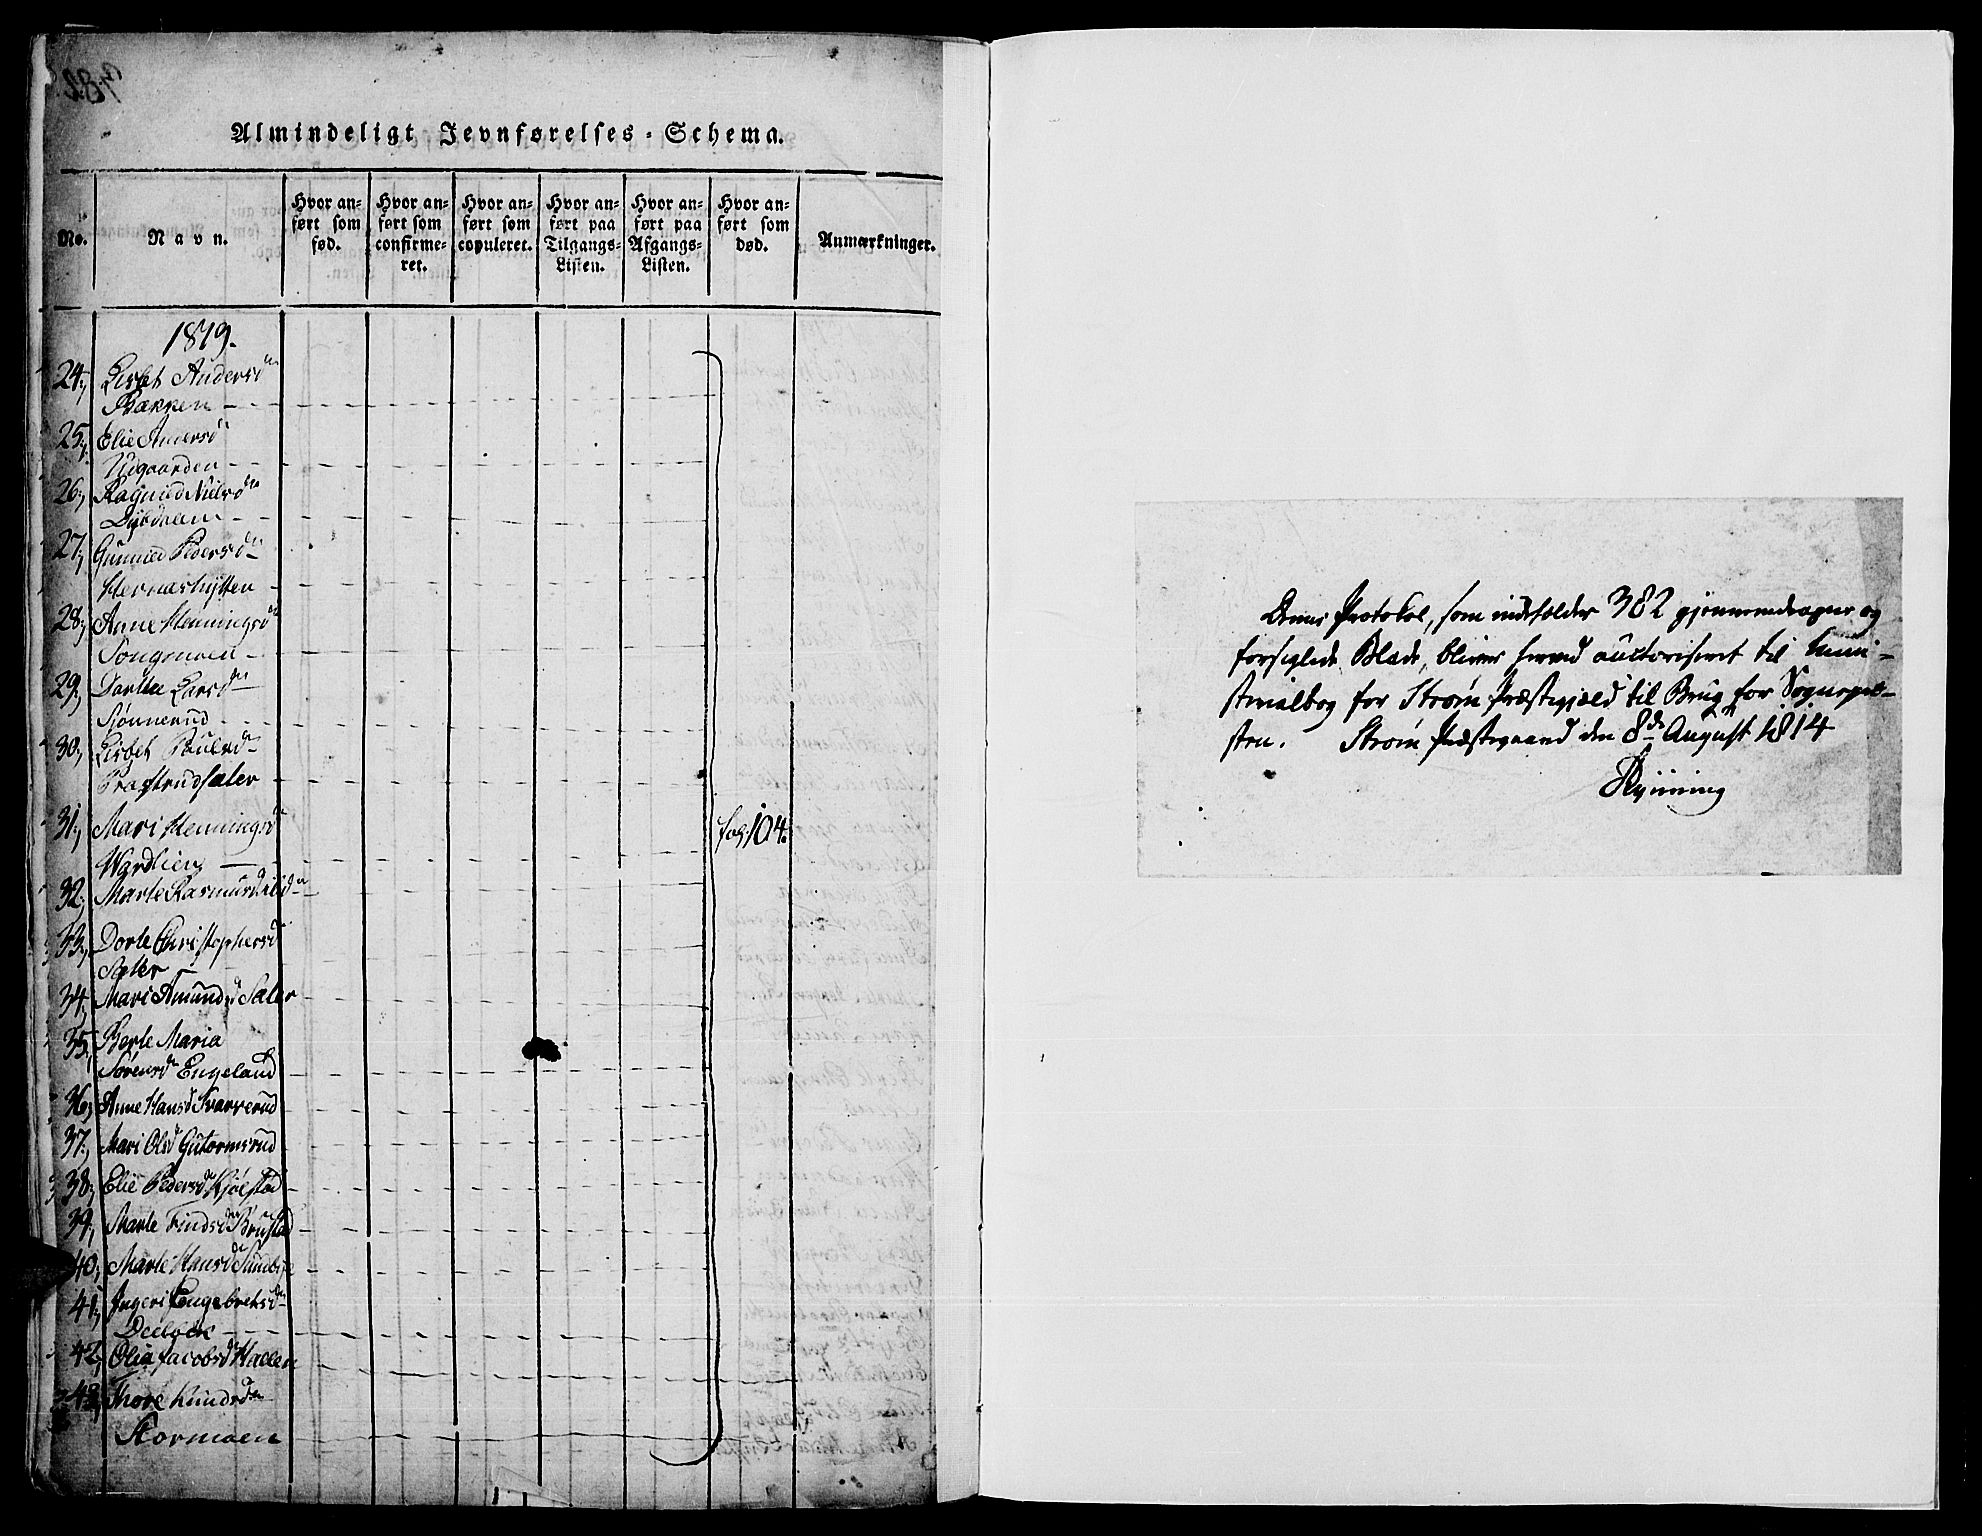 Almindeligt Jevnførelses-Schema.
No.
Navn.
Hvor an-
ført som
fød.
Hvor an-
ført som
confirme-
ret.
Hvor an-
ført som
copuleret.
Hvor an-
ført paa
Tilgangs-
Listen.
Hvor an-
ført paa
Afgangs-
Listen.
Hvor an-
ført som
død.
Anmærkninger.
1819.
24, Lisbet Andersdn
Bækken
25, Elie Amersd
Nigaarden
26, Ragnild Nielsdn
Dybdalen
27, Gunnild Pedersdn
Hernæshytten
28, Anne Henningsdn
Songmoen
29, Dorthe Larsdn
Sjønnerud
30, Lisbet Paulsd
Prastrudsæter
31, Mari Henningsd fol: 104.
Wardlien
32, Marte Rasmusd
33, Dorte Christophersd
Sæter
34, Mari Amundsd Sæter
35, Berte Maria
Sørensdn Engeland
36, Anne Hansd Svarverud
37, Mari Olsd Gutormsrud
38, Elie Pedersdn Kjølstad
39, Marte Findsdn Brustad
40, Marte Hansdn Sundbye
41, Ingeri Engebretsdn
42, Olia Jacobsdn Hallen
43, Thore Knudsdn
Stormoen
Denne Protokol, som indeholder 382 gjennemdragne og
forseglede Blade, bliver herved auctoriseret til Mini-
sterialbog for Strøm Præstegjeld til Brug for Sognepræ-
sten. Strøm Præstegaard den 8de August 1814
Rynning